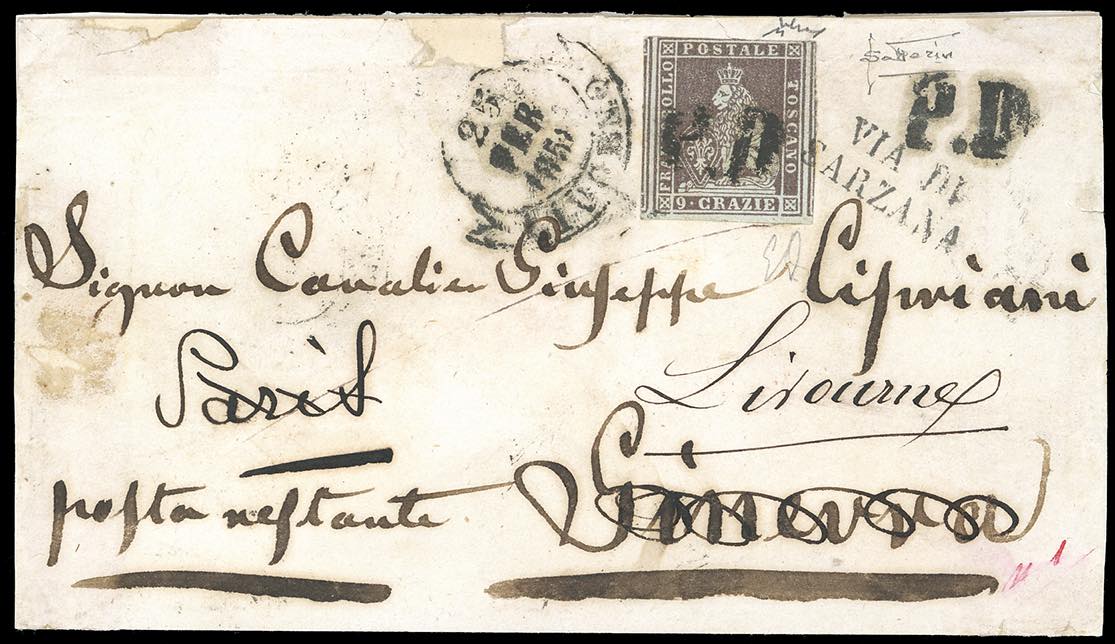 25
FEB
POSTALE
FRANCOBOLLO
TOSCANO
9 · GRAZIE
P.D
P.D
VIA DI
SARZANA
Signor Cavalier Giuseppe Cipriani
Paris
Livourne
posta restante